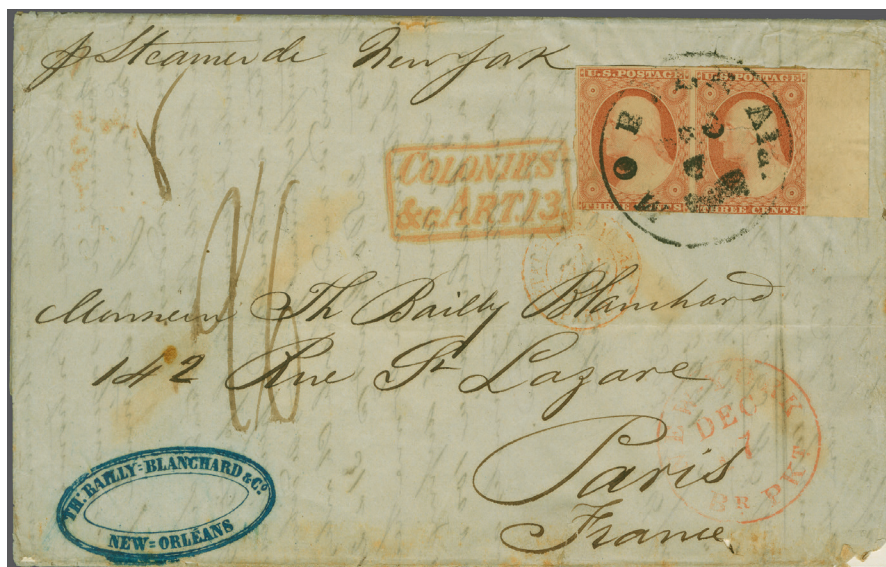 p Steamer de New York
U.S. POSTAGE U.S. POSTAGE
THREE CENTS THREE CENTS
MOBILE Ala.
COLONIES
&c. ART. 13.
Monsieur Th Bailly Blanchard
142 Rue St Lazare
Paris
France
NEW YORK
DEC
BR PKT
TH: BAILLY=BLANCHARD & Co
NEW=ORLÉANS